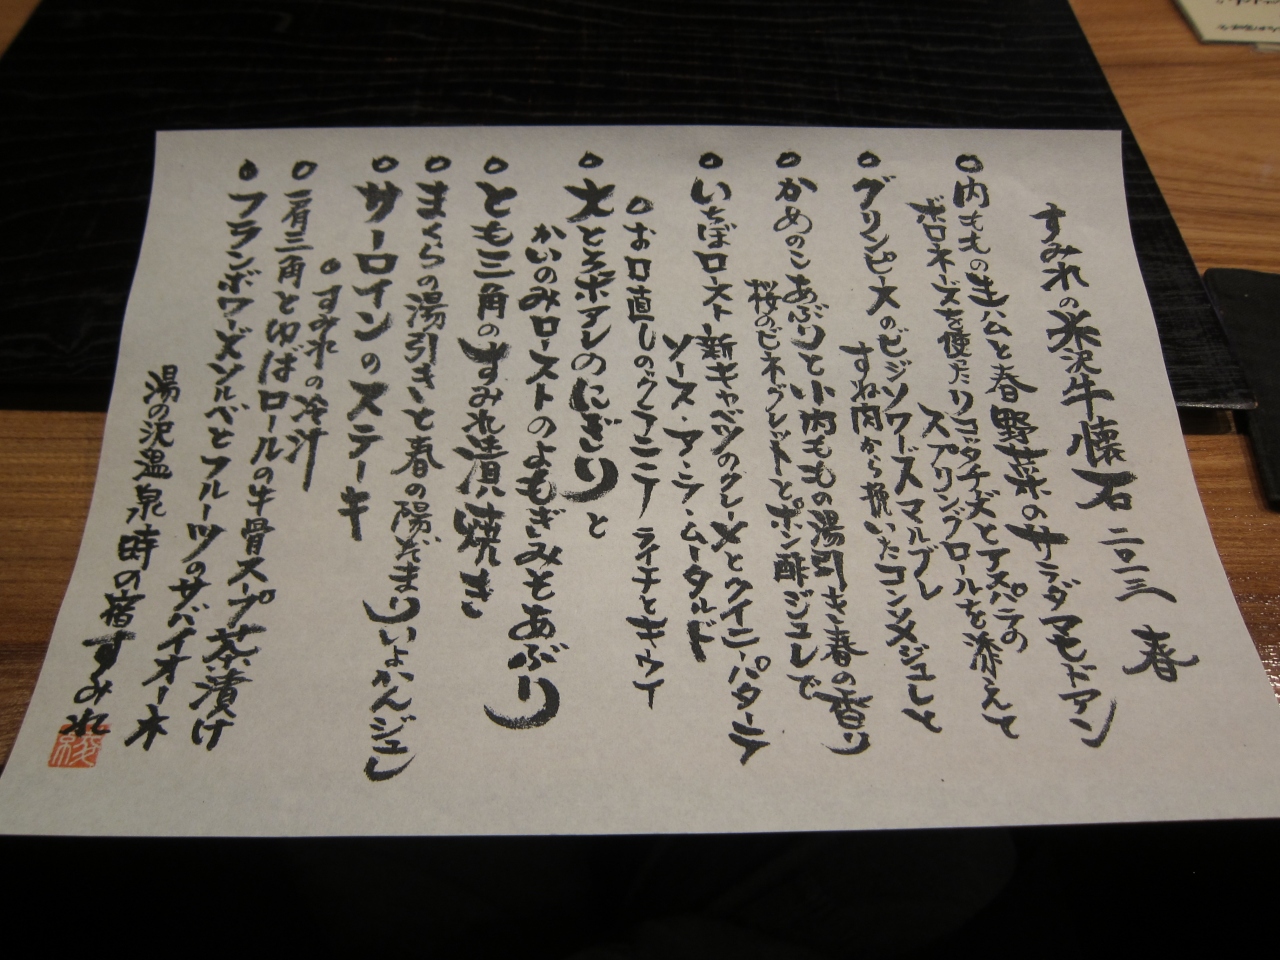 すみれの米沢牛懐石 二〇一三 春
○内ももの生ハムと春野菜のサラダマモドアン
ボロネーズを使ったリコッタチーズとアスパラの
スプリングロールを添えて
○グリンピースのビシソワーズ スマルブレ
すね肉から挽いたコンソメジュレと
○かめのこあぶりと小内ももの湯引き 春の香り
桜のビネグレットとポン酢ジュレで
○いちぼロースト 新キャベツのクレーメとクイニーパターテ
ソース・ア・ラ・ムータルド
○お口直しのグラニテ ライチとキウイ
○大とろポアレのにぎりと
かいのみローストのよもぎみそあぶり
○とも三角のすみれ漬焼き
○まくらの湯引きと春の陽だまり いよかんジュレ
○サーロインのステーキ
○すみれの冷汁
○肩三角と幼ばロールの牛骨スープ茶漬け
○フランボワーズソルベとフルーツのサバイオーネ
湯の沢温泉 時の宿 すみれ